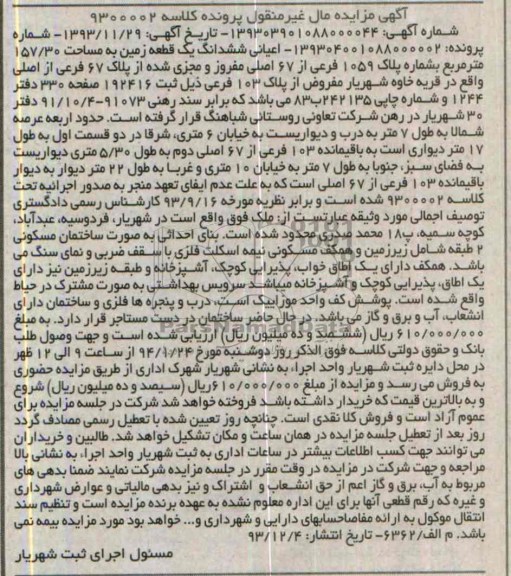 آگهی مزایده مال غیرمنقول پرونده کلاسه ۹۳۰۰۰۰۲
شماره آگهی: ۱۳۹۳۰۳۹۰۱۰۸۸۰۰۰۰۴۴- تاریخ آگهی: ۱۳۹۳/۱۱/۲۹- شماره
پرونده: ۱۳۹۳۰۴۰۰۱۰۸۸۰۰۰۰۰۲- اعیانی ششدانگ یک قطعه زمین به مساحت ۱۵۷/۳۰
مترمربع بشماره پلاک ۱۰۵۹ فرعی از ۶۷ اصلی مفروز و مجزی شده از پلاک ۶۷ فرعی از اصلی
واقع در قریه خاوه شهریار مفروض از پلاک ۱۰۳ فرعی ذیل ثبت ۱۹۲۴۱۶ صفحه ۳۳۰ دفتر
۱۲۴۴ و شماره چاپی ۲۴۲۱۳۵ب۸۳ می باشد که برابر سند رهنی ۹۱۰۷۳-۹۱/۱۰/۴ دفتر
۳۰ شهریار در رهن شرکت تعاونی روستائی شباهنگ قرار گرفته است. حدود اربعه عرصه
شمالا به طول ۷ متر به درب و دیواریست به خیابان ۶ متری، شرقا در دو قسمت اول به طول
۱۷ متر دیواری است به باقیمانده ۱۰۳ فرعی از ۶۷ اصلی دوم به طول ۵/۳۰ متری دیواریست
به فضای سبز، جنوبا به طول ۷ متر به خیابان ۱۰ متری و غربا به طول ۲۲ متر دیوار به دیوار
باقیمانده ۱۰۳ فرعی از ۶۷ اصلی است که به علت عدم ایفای تعهد منجر به صدور اجرائیه تحت
کلاسه ۹۳۰۰۰۰۲ شده است و برابر نظریه مورخه ۹۳/۹/۱۶ کارشناس رسمی دادگستری
توصیف اجمالی مورد وثیقه عبارتست از: ملک فوق واقع است در شهریار، فردوسیه، عبدآباد،
کوچه سمیه، پ۱۸ محمد صدری محدود شده است. بنای احداثی به صورت ساختمان مسکونی
۲ طبقه شامل زیرزمین و همکف مسکونی نیمه اسکلت فلزی با سقف ضربی و نمای سنگ می
باشد. همکف دارای یک اطاق خواب، پذیرایی کوچک، آشپزخانه و طبقه زیرزمین نیز دارای
یک اطاق، پذیرایی کوچک و آشپزخانه میباشد سرویس بهداشتی به صورت مشترک در حیاط
واقع شده است. پوشش کف واحد موزاییک است، درب و پنجره ها فلزی و ساختمان دارای
انشعاب، آب و برق و گاز می باشد. در حال حاضر ساختمان در دست مستاجر قرار دارد. به مبلغ
۶۱۰/۰۰۰/۰۰۰ ریال (ششصد و ده میلیون ریال) ارزیابی شده است و جهت وصول طلب
بانک و حقوق دولتی کلاسه فوق الذکر روز دوشنبه مورخ ۹۴/۱/۲۴ از ساعت ۹ الی ۱۲ ظهر
در محل دایره ثبت شهریار واحد اجرا، به نشانی شهریار شهرک اداری از طریق مزایده حضوری
به فروش می رسد و مزایده از مبلغ ۶۱۰/۰۰۰/۰۰۰ریال (سیصد و ده میلیون ریال) شروع
و به بالاترین قیمت که خریدار داشته باشد فروخته خواهد شد شرکت در جلسه مزایده برای
عموم آزاد است و فروش کلا نقدی است. چنانچه روز تعیین شده با تعطیل رسمی مصادف گردد
روز بعد از تعطیل جلسه مزایده در همان ساعت و مکان تشکیل خواهد شد. طالبین و خریداران
می توانند جهت کسب اطلاعات بیشتر در ساعات اداری به ثبت شهریار واحد اجرا، به نشانی بالا
مراجعه و جهت شرکت در مزایده در وقت مقرر در جلسه مزایده شرکت نمایند ضمنا بدهی های
مربوط به آب، برق و گاز اعم از حق انشعاب و اشتراک و نیز بدهی مالیاتی و عوارض شهرداری
و غیره که رقم قطعی آنها برای این اداره معلوم نشده به عهده برنده مزایده است و تنظیم سند
انتقال موکول به ارائه مفاصاحسابهای دارایی و شهرداری و... خواهد بود مورد مزایده بیمه نمی
باشد. م الف/۶۳۶۲- تاریخ انتشار: ۹۳/۱۲/۴
مسئول اجرای ثبت شهریار